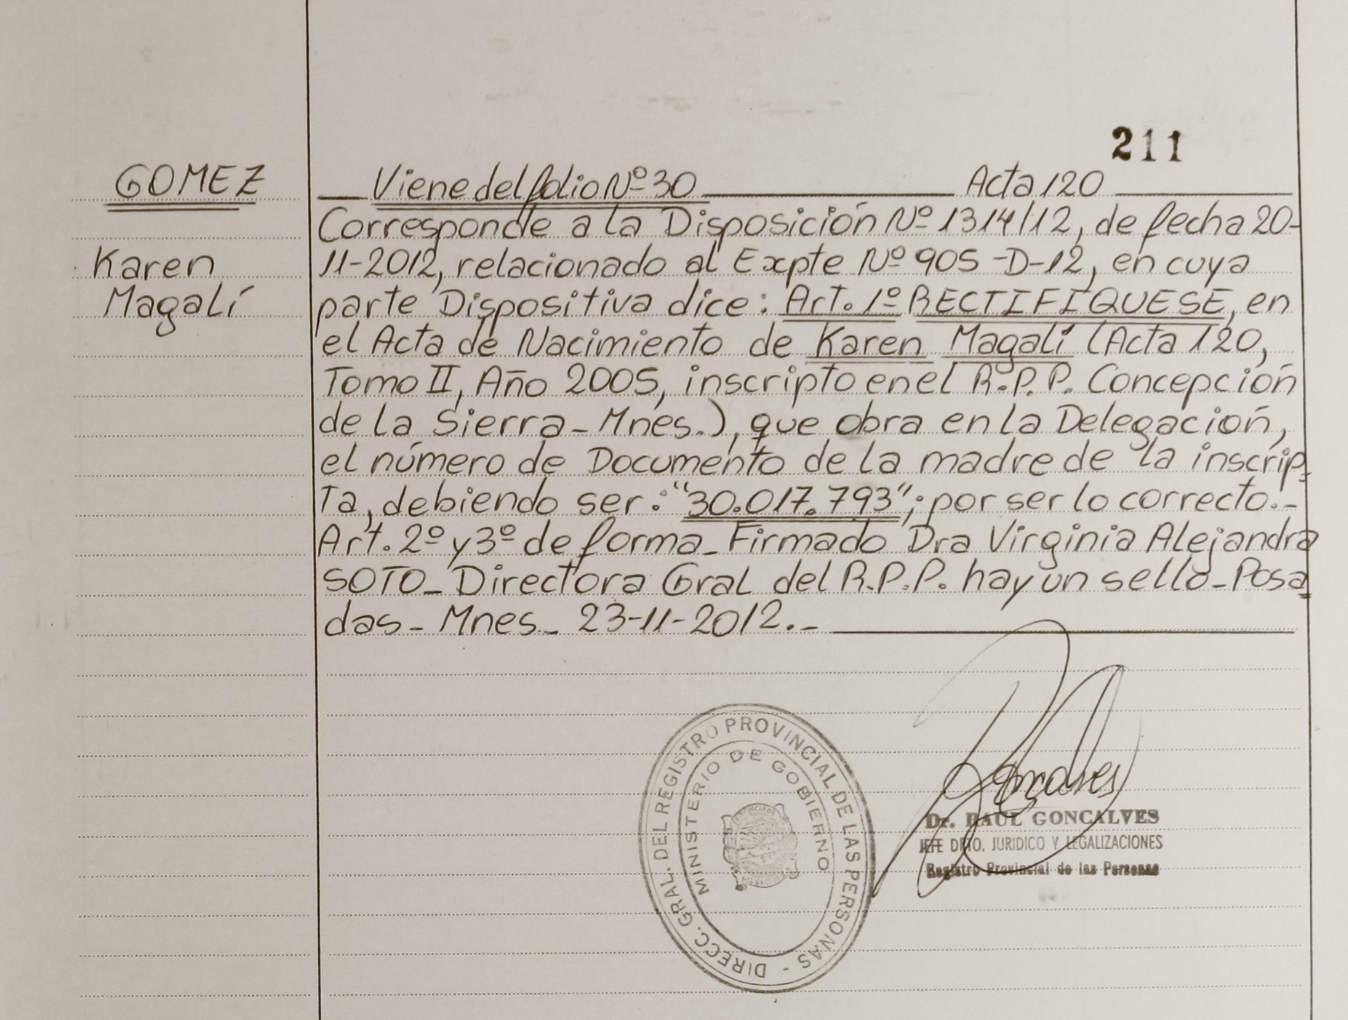 211
GOMEZ
Karen
Magalí
Viene del folio Nº 30 Acta 120
Corresponde a la Disposición Nº 1314/12, de fecha 20-
11-2012, relacionado al Expte Nº 905-D-12, en cuya
parte Dispositiva dice: Art. 1º RECTIFIQUESE, en
el Acta de Nacimiento de Karen Magalí (Acta 120,
Tomo II, Año 2005, inscripto en el R.P.P. Concepción
de la Sierra-Mnes.), que obra en la Delegación,
el número de Documento de la madre de la inscrip-
ta, debiendo ser: "30.017.793"; por ser lo correcto.-
Art. 2º y 3º de forma_Firmado Dra Virginia Alejandra
SOTO_Directora Gral del R.P.P. hay un sello_Posa
das_Mnes_ 23-11-2012._
DIRECC. GRAL. DEL REGISTRO PROVINCIAL DE LAS PERSONAS -
MINISTERIO DE GOBIERNO
Goncalves
Dr. RAUL GONCALVES
JEFE DPTO. JURIDICO Y LEGALIZACIONES
Registro Provincial de las Personas